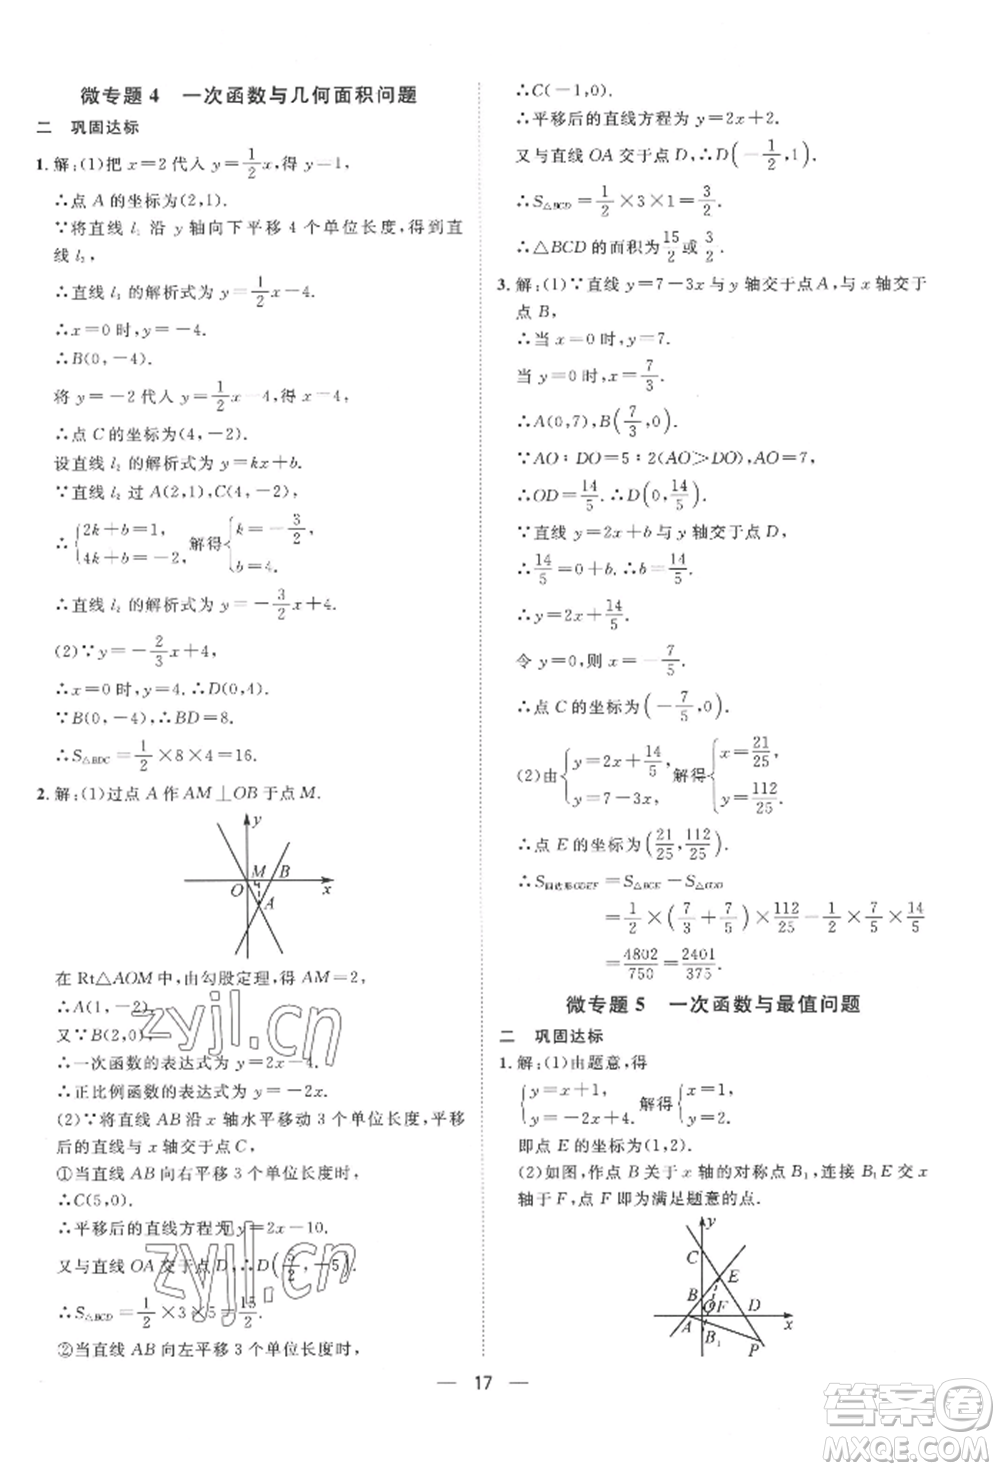 微专题 4　一次函数与几何面积问题
二　巩固达标
1. 解:(1)把 x=2 代入 y=1/2x,得 y=1,
∴点 A 的坐标为(2,1).
∵将直线 l₁ 沿 y 轴向下平移 4 个单位长度,得到直
线 l₃,
∴直线 l₃ 的解析式为 y=1/2x-4.
∴x=0 时,y=-4.
∴B(0,-4).
将 y=-2 代入 y=1/2x-4,得 x=4,
∴点 C 的坐标为(4,-2).
设直线 l₂ 的解析式为 y=kx+b.
∵直线 l₂ 过 A(2,1),C(4,-2),
∴{2k+b=1, 4k+b=-2, 解得{k=-3/2, b=4.
∴直线 l₂ 的解析式为 y=-3/2x+4.
(2)∵y=-2/3x+4,
∴x=0 时,y=4. ∴D(0,4).
∵B(0,-4),∴BD=8.
∴S△BDC=1/2×8×4=16.
2. 解:(1)过点 A 作 AM⊥OB 于点 M.
y
M B
O x
A
在 Rt△AOM 中,由勾股定理,得 AM=2,
∴A(1,-2).
又∵B(2,0),
∴一次函数的表达式为 y=2x-4.
∴正比例函数的表达式为 y=-2x.
(2)∵将直线 AB 沿 x 轴水平移动 3 个单位长度,平移
后的直线与 x 轴交于点 C,
①当直线 AB 向右平移 3 个单位长度时,
∴C(5,0).
∴平移后的直线方程为 y=2x-10.
又∵与直线 OA 交于点 D,∴D(5/2,-5).
∴S△BCD=1/2×3×5=15/2.
②当直线 AB 向左平移 3 个单位长度时,
∴C(-1,0).
∴平移后的直线方程为 y=2x+2.
又∵与直线 OA 交于点 D,∴D(-1/2,1).
∴S△BCD=1/2×3×1=3/2.
∴△BCD 的面积为 15/2 或 3/2.
3. 解:(1)∵直线 y=7-3x 与 y 轴交于点 A,与 x 轴交于
点 B,
∴当 x=0 时,y=7.
当 y=0 时,x=7/3.
∴A(0,7),B(7/3,0).
∵AO∶DO=5∶2(AO>DO),AO=7,
∴OD=14/5.∴D(0,14/5).
∵直线 y=2x+b 与 y 轴交于点 D,
∴14/5=0+b.∴b=14/5.
∴y=2x+14/5.
令 y=0,则 x=-7/5.
∴点 C 的坐标为(-7/5,0).
(2)由{y=2x+14/5, y=7-3x, 解得{x=21/25, y=112/25.
∴点 E 的坐标为(21/25,112/25).
∴S四边形OBEF=S△BCE-S△COD
=1/2×(7/3+7/5)×112/25-1/2×7/5×14/5
=4802/750=2401/375.
微专题 5　一次函数与最值问题
二　巩固达标
1. 解:(1)由题意,得
{y=x+1, y=-2x+4, 解得{x=1, y=2.
即点 E 的坐标为(1,2).
(2)如图,作点 B 关于 x 轴的对称点 B₁,连接 B₁E 交 x
轴于 F,点 F 即为满足题意的点.
y
C
E
B
O F D
A B₁ x
P
17
zyjl.cn
zyjl.cn
答案圈
MXQE.COM